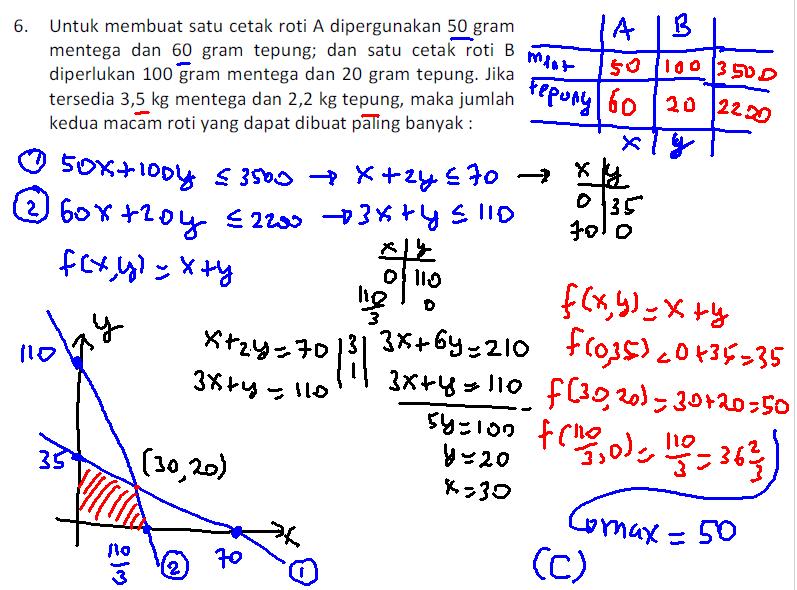 6. Untuk membuat satu cetak roti A dipergunakan 50 gram
mentega dan 60 gram tepung; dan satu cetak roti B
diperlukan 100 gram mentega dan 20 gram tepung. Jika
tersedia 3,5 kg mentega dan 2,2 kg tepung, maka jumlah
kedua macam roti yang dapat dibuat paling banyak :
A B
50 100 3500
tepung 60 20 2200
x y
① 50x+100y ≤ 3500 → x+2y ≤ 70 →
x y
0 35
70 0
② 60x+20y ≤ 2200 → 3x+y ≤ 110
x y
0 110
110/3 0
f(x,y) = x+y
y
110
35
(30,20)
110/3
②
70
①
x
x+2y=70 |3| 3x+6y=210
3x+y=110 |1| 3x+y=110
-
5y=100
y=20
x=30
f(x,y)=x+y
f(0,35)=0+35=35
f(30,20)=30+20=50
f(110/3,0)=110/3=36 2/3
max = 50
(C)